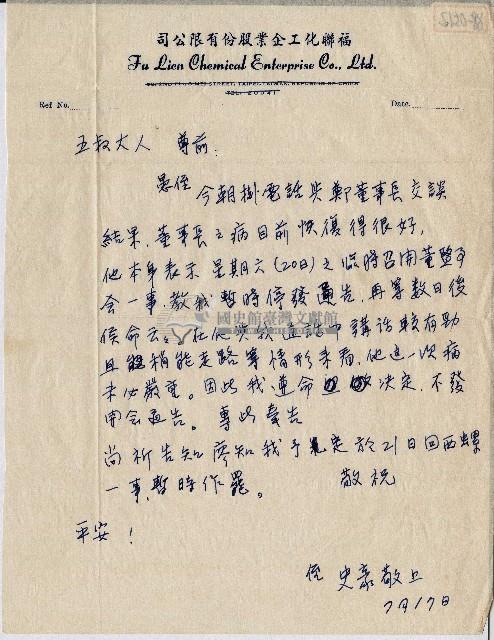 司公限有份股業企工化聯福
Fu Lien Chemical Enterprise Co., Ltd.
Ref No.
Date.
五叔大人 尊前:
愚侄
今朝掛電話與鄭董事長交談
結果，董事長之病目前恢復得很好，
他本身表示星期六(20日)之臨時召開董監事
會一事，教我暫時停發通告，再等數日後
候命云。在他與我通話中講話較有勁
且稍能走路等情形來看，他這一次病
未必嚴重。因此我遵命決定，不發
開會通告。專此奉告
尚祈告知廖知我予定於21日回西螺
一事，暫時作罷。 敬祝
平安！
侄 史豪敬上
7月17日
國史館臺灣文獻館